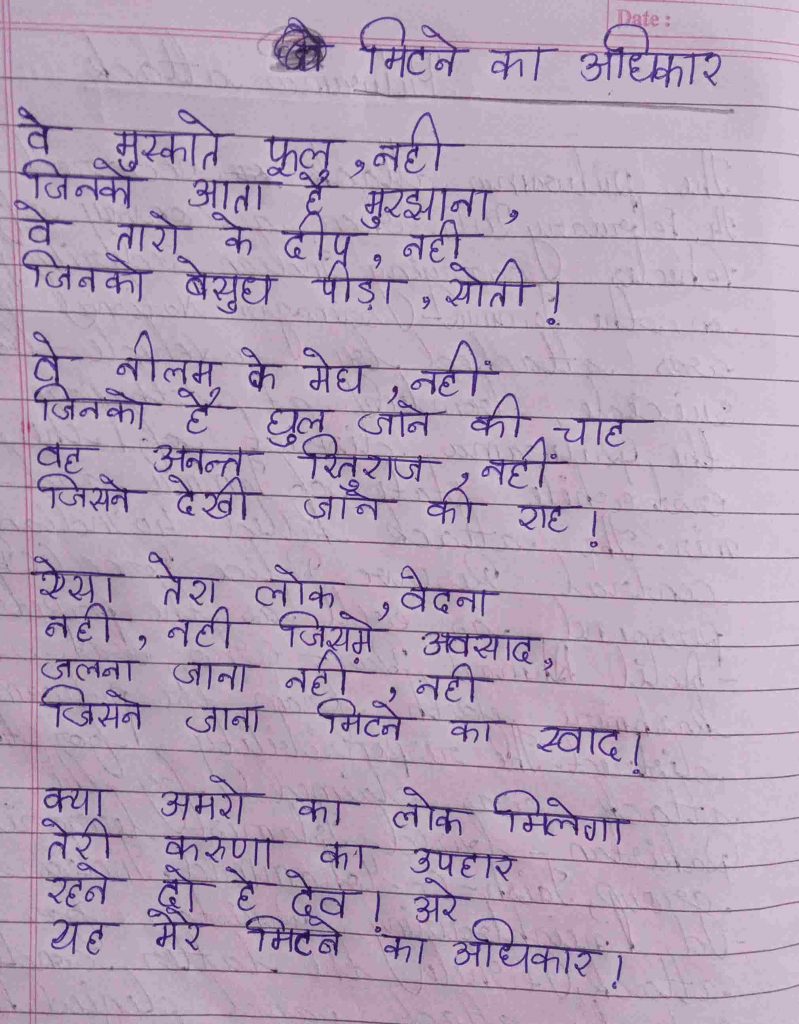 Date :
मिटने का अधिकार
वे मुस्काते फूल, नही
जिनको आता है मुरझाना,
वे तारो के दीप, नही
जिनको बेसुध पीड़ा, सोती !
वे नीलम के मेघ, नहीं
जिनको है घुल जाने की चाह
वह अनन्त रितुराज, नहीं
जिसने देखी जाने की राह !
ऐसा तेरा लोक, वेदना
नही, नही जिसमें अवसाद,
जलना जाना नही, नही
जिसने जाना मिटने का स्वाद !
क्या अमरो का लोक मिलेगा
तेरी करुणा का उपहार
रहने दो हे देव ! अरे
यह मेरे मिटने का अधिकार !